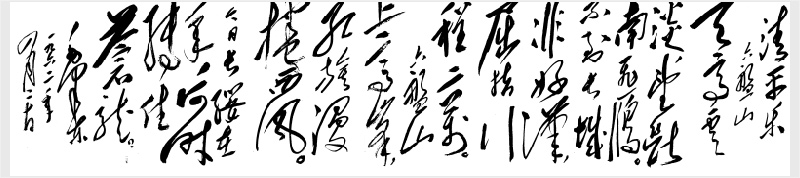 清平乐
六盤山
天高云
淡望断
南飛雁。
不到长城
非好漢，
屈指行
程二萬。
六盤山
上高峰，
红旗漫
捲西风。
今日长
缨在
手，何时
缚住
苍龙。
毛泽东
一九六一年